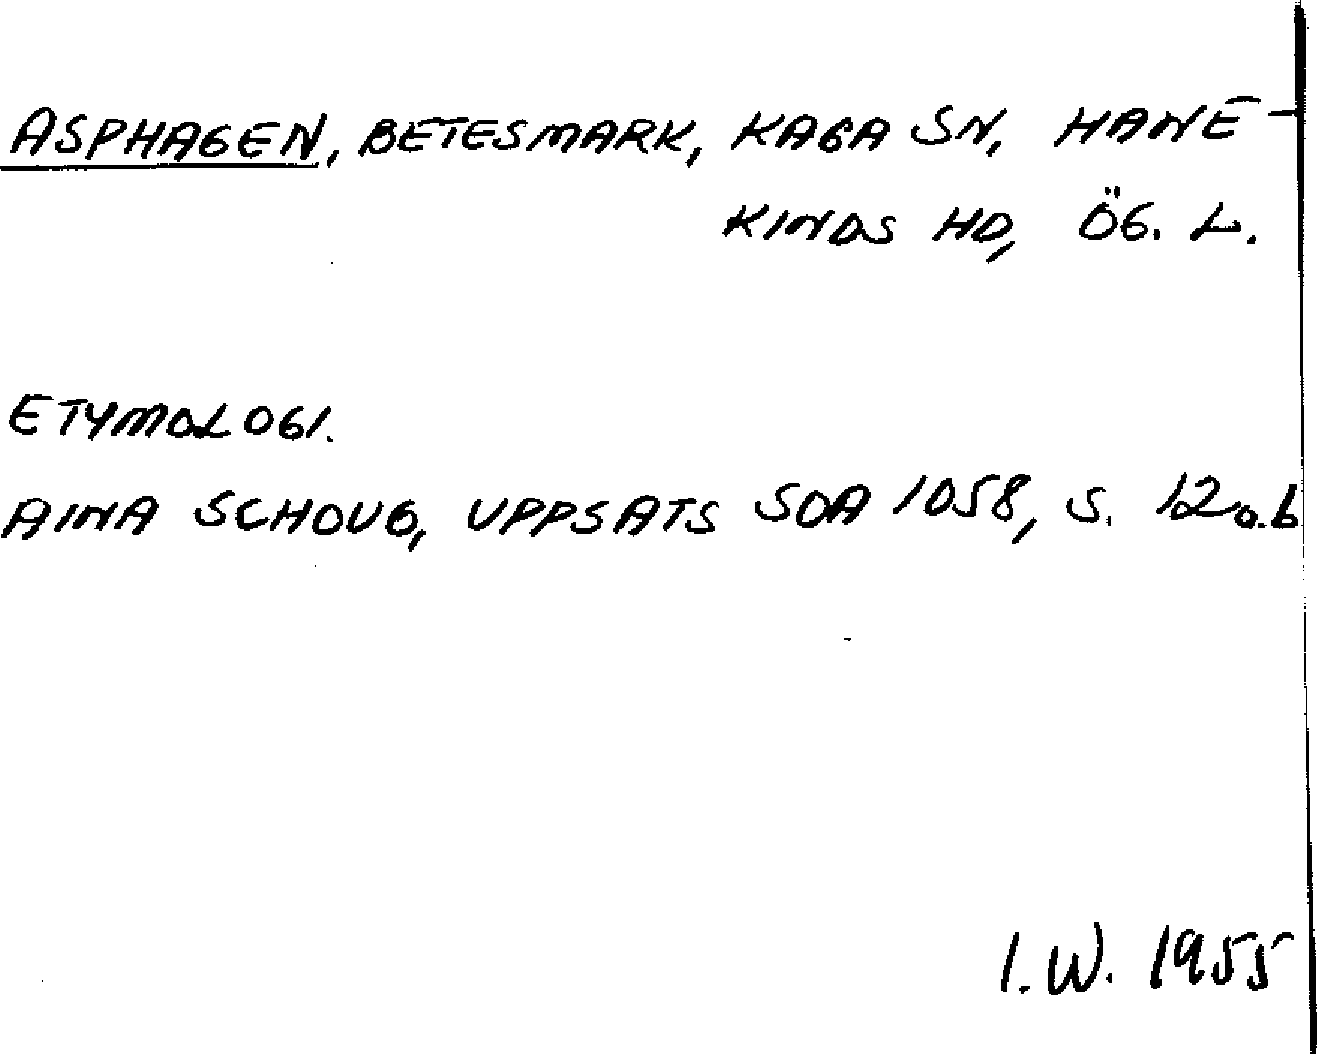 ASPHAGEN, BETESMARK, KAGA SN, HANE-
KINDS HD, ÖG. L.
ETYMOLOGI.
AINA SCHOUG, UPPSATS SOA 1058, S. 12 a.b
I.W. 1955